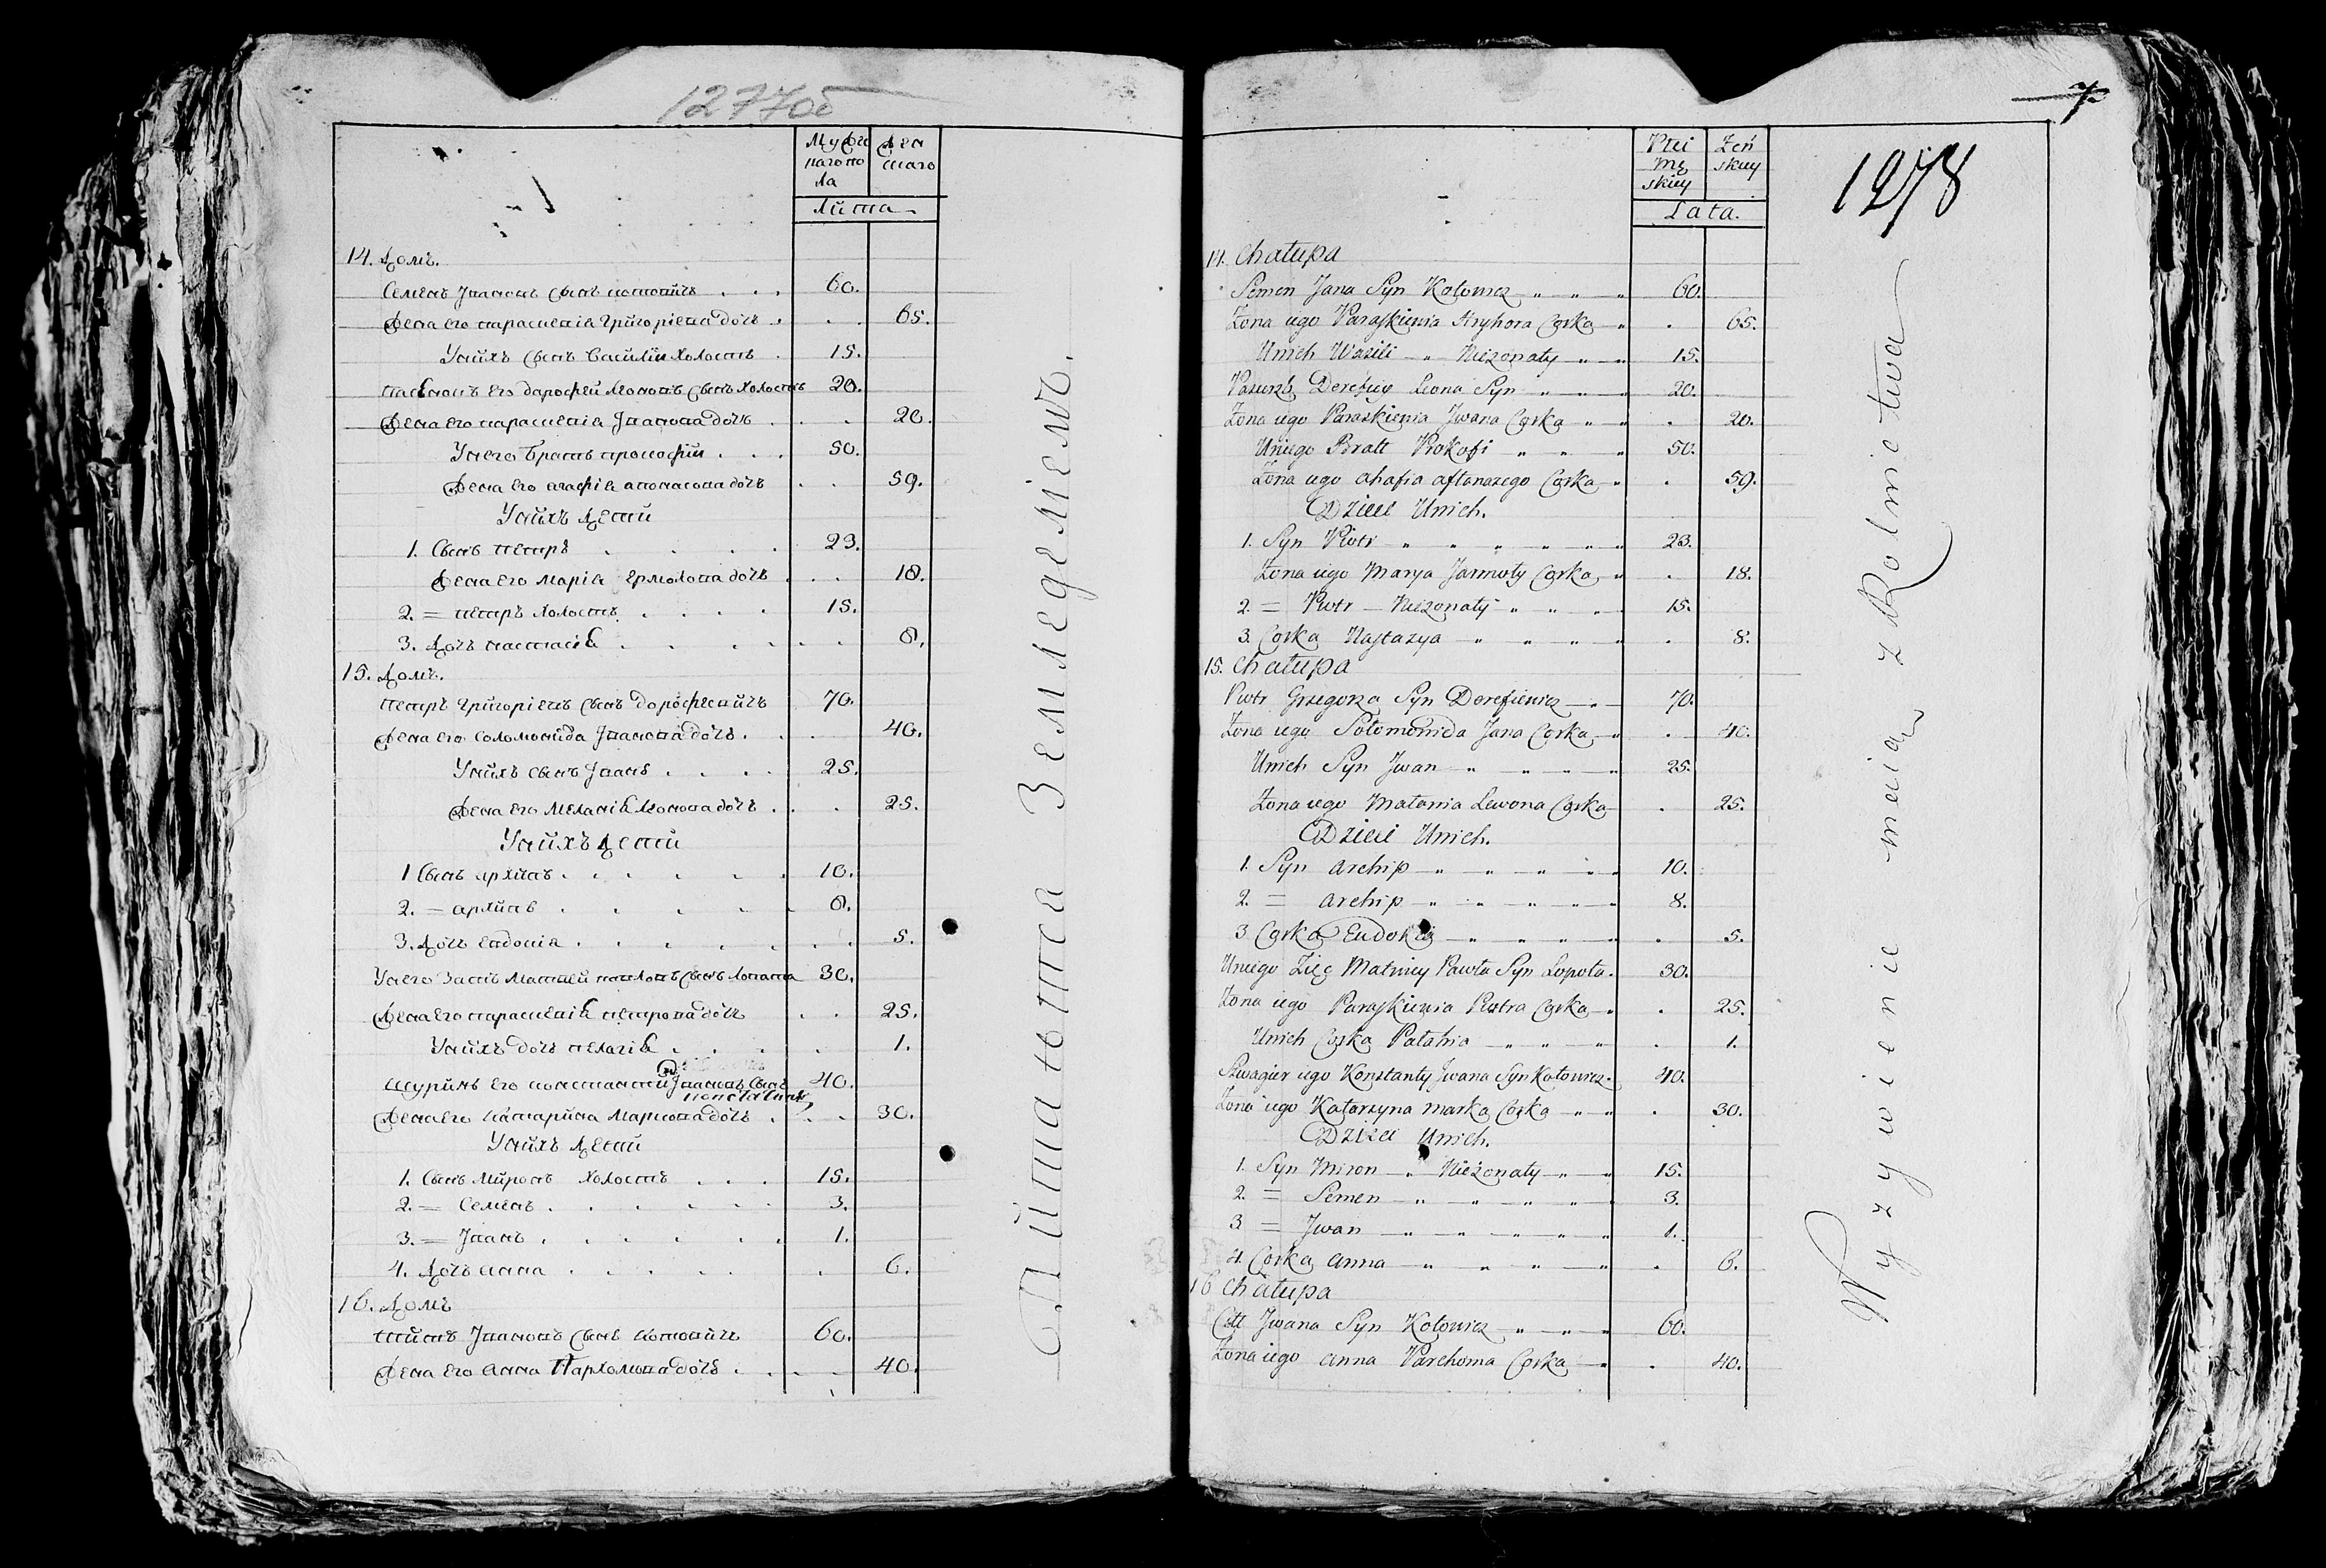 1277об
Мужескаго пола
Женскаго
Лита
14. Домъ.
Семенъ Ивановъ сынъ котовичъ 60.
Жена его параскевія Григоріева дочъ 65.
У нихъ сынъ Василіи холостъ 15.
пасынокъ его дарофей Леоновъ сынъ холостъ 20.
Жена его параскевія Иванова дочъ 20.
У него братъ прокофіи 50.
Жена его агафія апанасова дочъ 59.
У нихъ дети
1. Сынъ петръ 23.
Жена его марія ермолова дочъ 18.
2. = петръ холостъ 15.
3. Дочъ настасія 8.
15. Домъ.
петръ григоріевъ сынъ дорофеевичъ 70.
Жена его соломонида Иванова дочъ 40.
У нихъ сынъ Иванъ 25.
Жена его меланія Леонова дочъ 25.
У нихъ дети
1 Сынъ архипъ 10.
2. = архипъ 8.
3. Дочъ евдокія 5.
У него зять матвей павловъ сынъ лопата 30.
Жена его параскевія петрова дочъ 25.
У нихъ дочъ пелагія 1.
Шуринъ его константий Ивановъ сынъ 40.
Жена его катарина маркова дочъ 30.
У нихъ дети
1. Сынъ миронъ холостъ 15.
2. = Семенъ 3.
3. = Иванъ 1.
4. Дочъ анна 6.
16. Домъ
титъ Ивановъ сынъ котовичъ 60.
Жена его анна Пархомова дочъ 40.
Питаютса Земледеліемъ.
7
1278
Płci Męskiey
Żeńskiey
Lata.
14. Chałupa
Semen Jana Syn Kotowicz „ „ „ 60.
Żona iego Paraskiewia Hryhora Corka „ . 65.
Unich Wasili „ Nieżonaty „ „ 15.
Pasierzb Derefiey Leona Syn „ „ „ 20.
Żona iego Paraskiewia Jwana Corka „ „ . 20.
Uniego Bratt Prokofi „ „ „ 50.
Żona iego ahafia aftanazego Corka „ . 59.
Dzieci Unich.
1. Syn Piotr „ „ „ „ „ „ 23.
Żona iego Marya Jarmoły Corka „ . 18.
2. = Piotr – Nieżonaty „ „ „ 15.
3. Corka Nastazya „ „ „ „ . 8.
15. Chałupa
Piotr Grzegorza Syn Derefiewicz 70.
Żona iego Sołomonida Jana Corka „ . 40.
Unich Syn Jwan „ „ „ „ 25.
Żona iego Matania Lewona Corka . 25.
Dzieci Unich.
1. Syn archip „ „ „ „ „ 10.
2. = archip „ „ „ „ „ 8.
3. Corka Eudokia „ „ „ „ . 5.
Uniego Zięć Matwiey Pawła Syn Łopota. 30.
Żona iego Paraskiewia Piotra Corka „ . 25.
Unich Corka Pałahia „ „ „ . 1.
Szwagier iego Konstanty Jwana Syn Kotowicz. 40.
Żona iego Katarzyna marka Corka „ „ . 30.
Dzieci Unich.
1. Syn Miron „ Nieżonaty „ „ 15.
2. = Semen „ „ „ „ „ 3.
3. = Jwan „ „ „ „ „ 1.
4. Corka anna „ „ „ „ . 6.
16 Chałupa
Citt Jwana Syn Kotowicz „ „ „ 60.
Żona iego anna Parchoma Corka „ . 40.
Wyzywienie maia z Rolnictwa